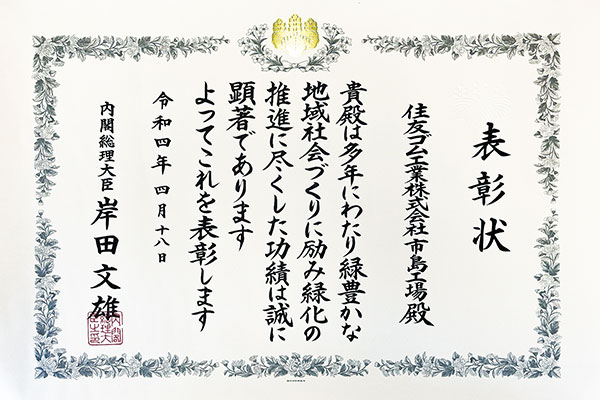 表彰状
住友ゴム工業株式会社市島工場殿
貴殿は多年にわたり緑豊かな
地域社会づくりに励み緑化の
推進に尽くした功績は誠に
顕著であります
よってこれを表彰します
令和四年四月十八日
内閣総理大臣 岸田文雄